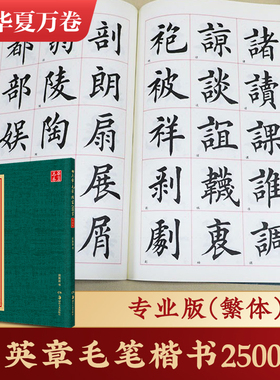 华夏万卷
部 翁 剖 袍 諒 諸
都 陵 朗 被 談 讀
娱 陶 扇 祥 誼 課
展 剥 韈 誰
屑 劇 衷 調
专业版(繁体)
英章毛笔楷书2500